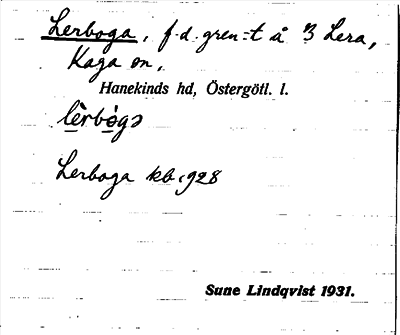 Lerboga, f.d. gren=t å 3 Lera,
Kaga sn,
Hanekinds hd, Östergötl. l.
lèrbògə
Lerboga kb. 928
Sune Lindqvist 1931.